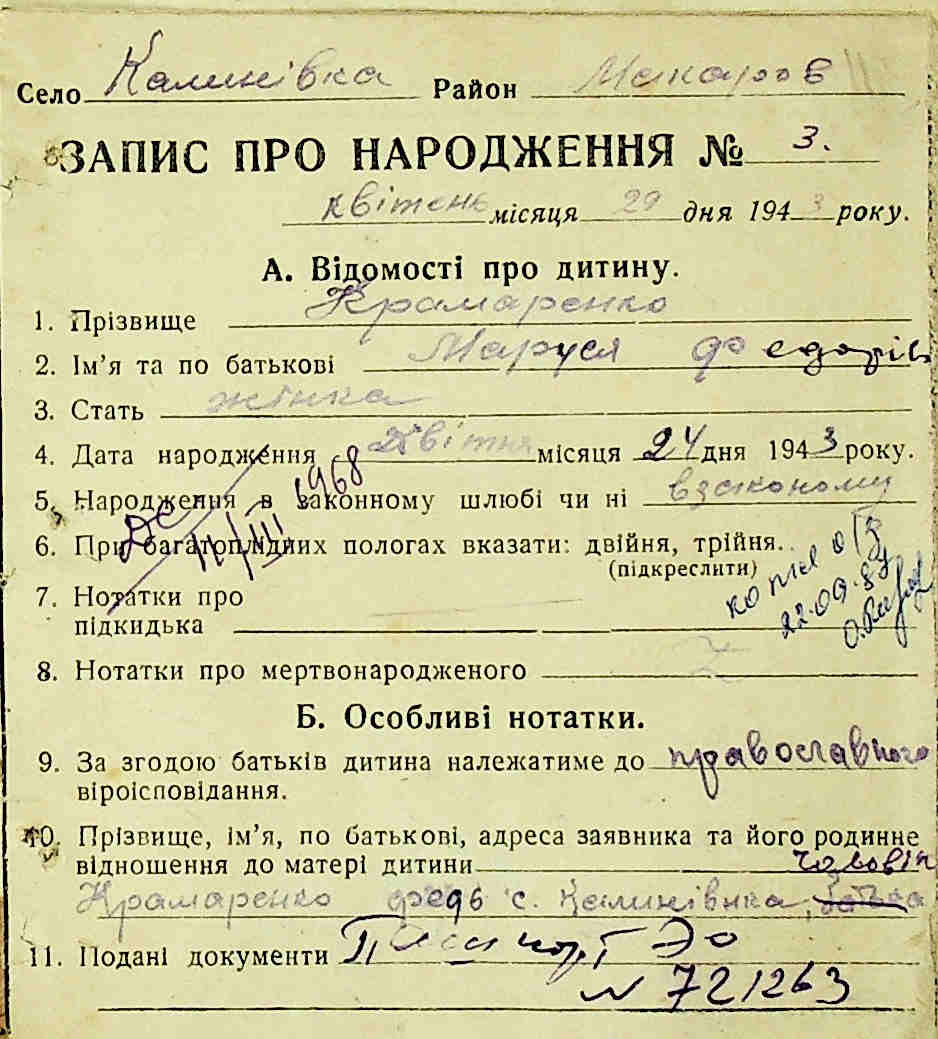 Село Калинівка Район Макарів
ЗАПИС ПРО НАРОДЖЕННЯ № 3.
квітень місяця 29 дня 1943 року.
А. Відомості про дитину.
1. Прізвище Крамаренко
2. Ім'я та по батькові Маруся Федорів
3. Стать жінка
4. Дата народження Квітня місяця 24 дня 1943 року.
5. Народження в законному шлюбі чи ні взаконому
11/III 1968
6. При багатоплідних пологах вказати: двійня, трійня.
(підкреслити)
7. Нотатки про
підкидька
копия
22.09.87
8. Нотатки про мертвонародженого
Б. Особливі нотатки.
9. За згодою батьків дитина належатиме до православного
віроісповідання.
10. Прізвище, ім'я, по батькові, адреса заявника та його родинне
відношення до матері дитини чоловік
Крамаренко Федь с. Калинівка,
11. Подані документи Паспорт ЭО
N 721263